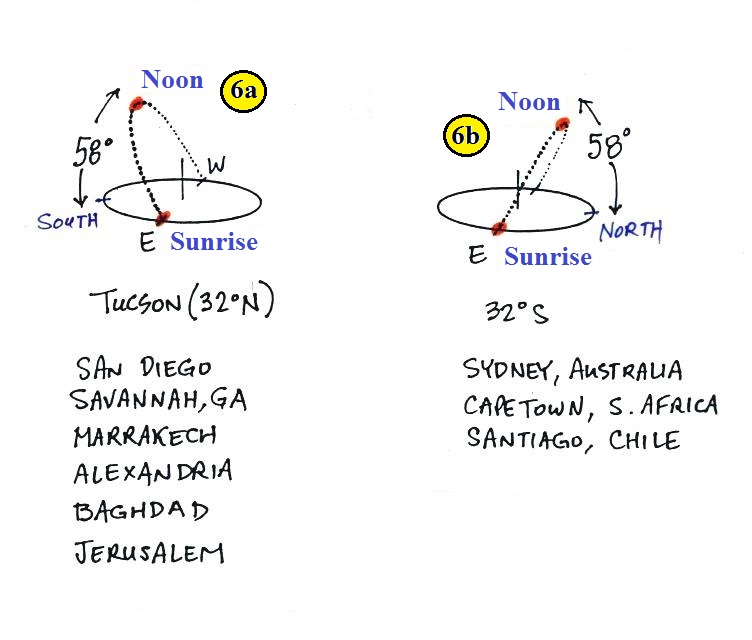 Noon
6a
58°
W
SOUTH
E Sunrise
TUCSON (32°N)
SAN DIEGO
SAVANNAH, GA
MARRAKECH
ALEXANDRIA
BAGHDAD
JERUSALEM
Noon
6b
58°
NORTH
E Sunrise
32°S
SYDNEY, AUSTRALIA
CAPETOWN, S. AFRICA
SANTIAGO, CHILE